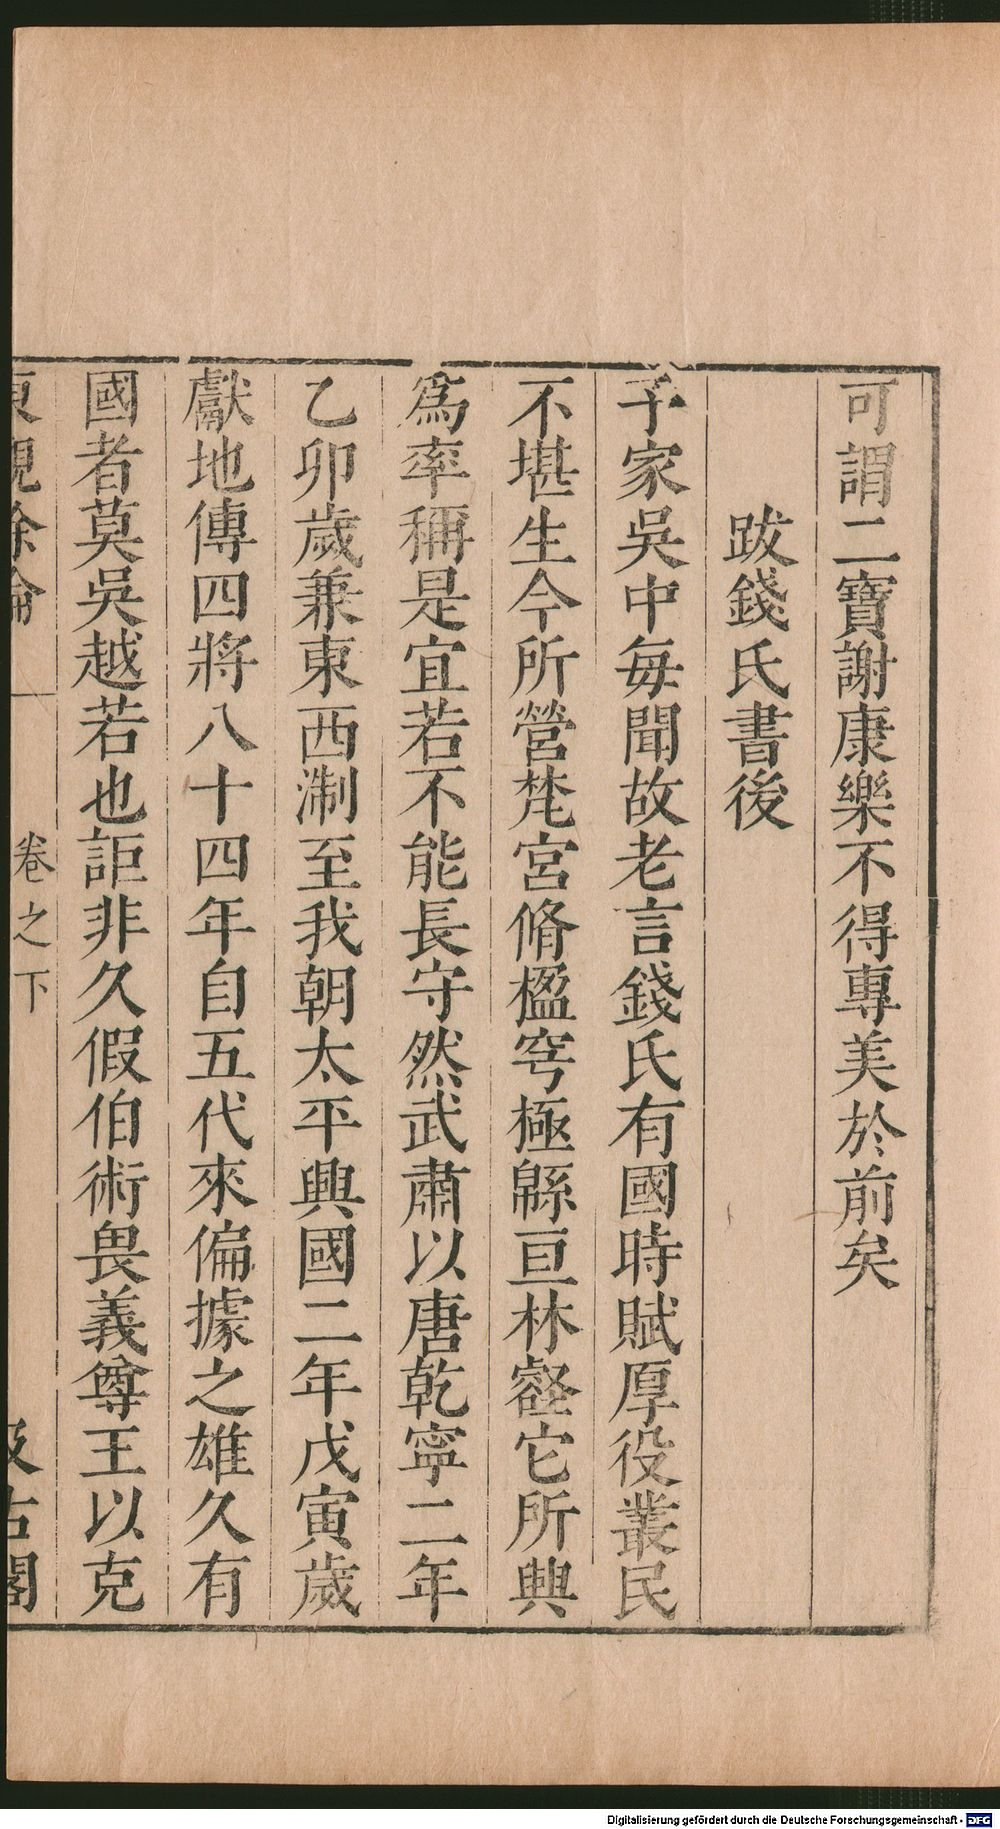 可謂二寶謝康樂不得專美於前矣
跋錢氏書後
予家吳中每聞故老言錢氏有國時賦厚役叢民
不堪生今所營梵宮脩楹穹極緜亘林壑它所興
爲率稱是宜若不能長守然武肅以唐乾寧二年
乙卯歲兼東西淛至我朝太平興國二年戊寅歲
獻地傳四將八十四年自五代來偏據之雄久有
國者莫吳越若也詎非久假伯術畏義尊王以克
東觀餘論 卷之下 汲古閣
Digitalisierung gefördert durch die Deutsche Forschungsgemeinschaft - DFG